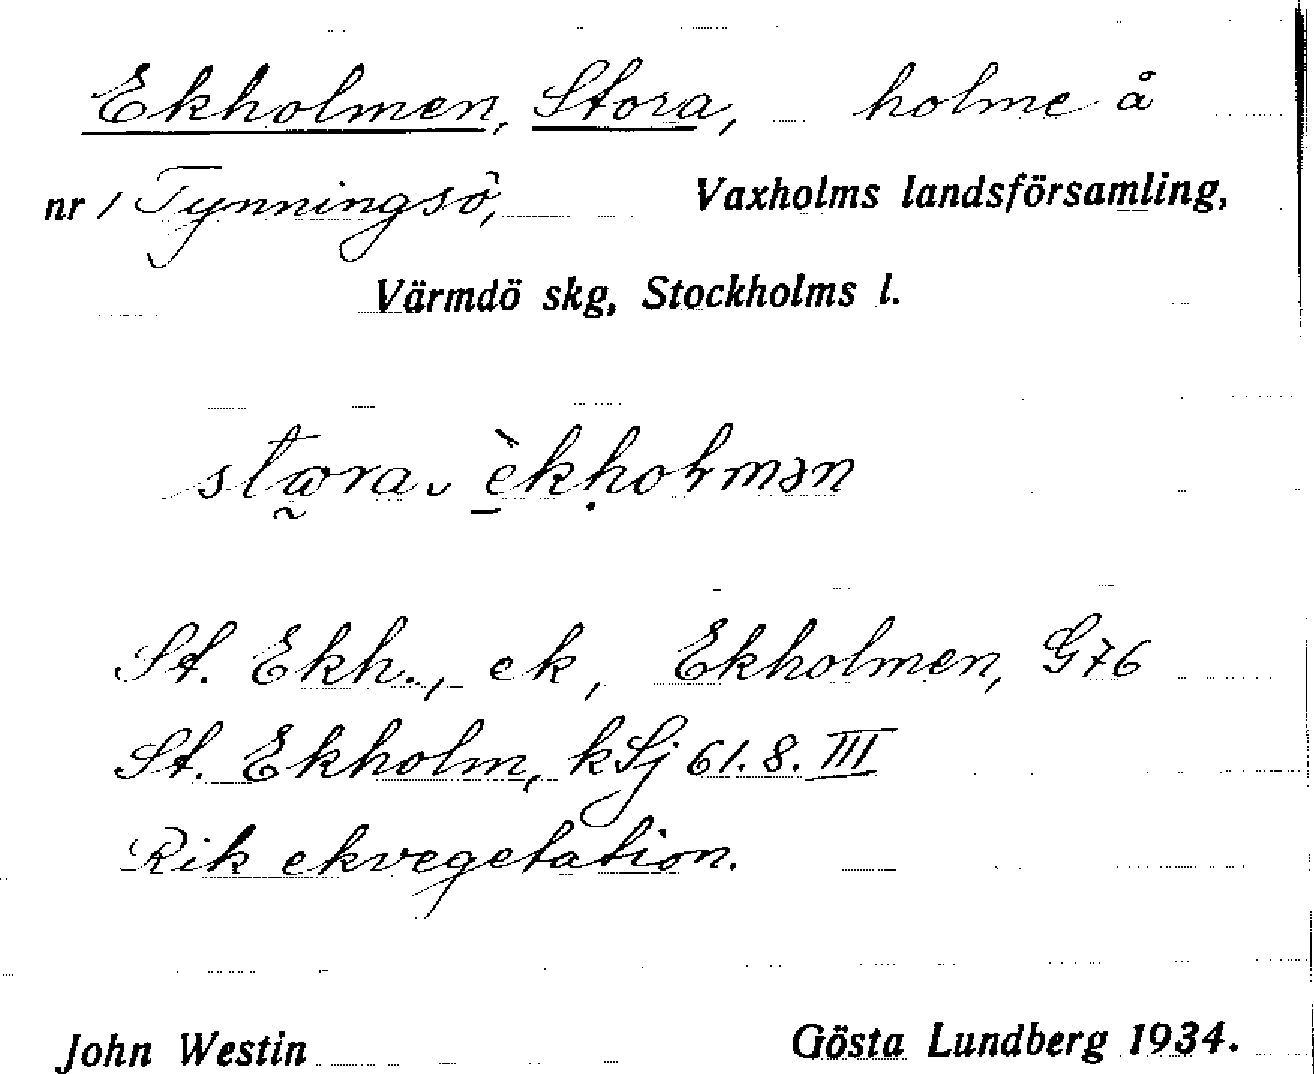 Ekholmen, Stora, holme å
nr 1 Tynningsö, Vaxholms landsförsamling,
Värmdö skg, Stockholms l.
St. Ekh., ek, Ekholmen, G76
St. Ekholm, kSj 61.8.III
Rik ekvegetation.
John Westin Gösta Lundberg 1934.